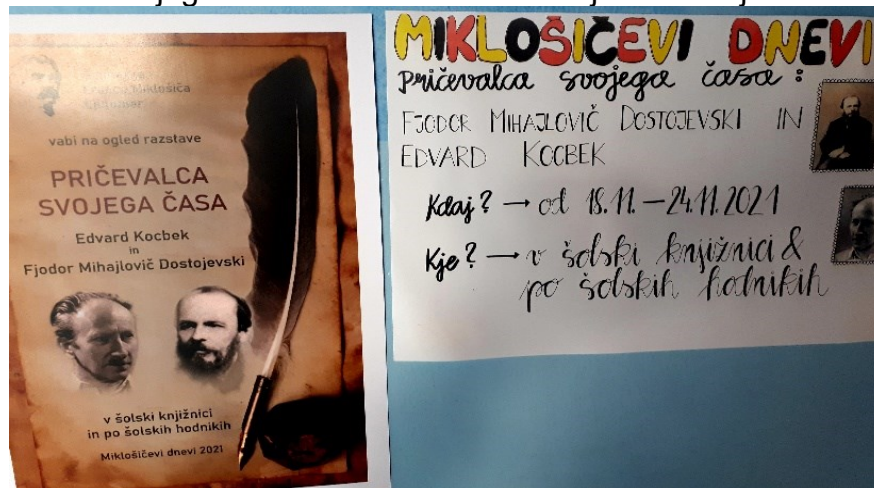 Franca Miklošiča
Ljutomer
vabi na ogled razstave
PRIČEVALCA
SVOJEGA ČASA
Edvard Kocbek
in
Fjodor Mihajlovič Dostojevski
v šolski knjižnici
in po šolskih hodnikih
Miklošičevi dnevi 2021
MIKLOŠIČEVI DNEVI
pričevalca svojega časa :
FJODOR MIHAJLOVIČ DOSTOJEVSKI IN
EDVARD KOCBEK
Kdaj? → od 18.11. – 24.11.2021
Kje? → v šolski knjižnici &
po šolskih hodnikih